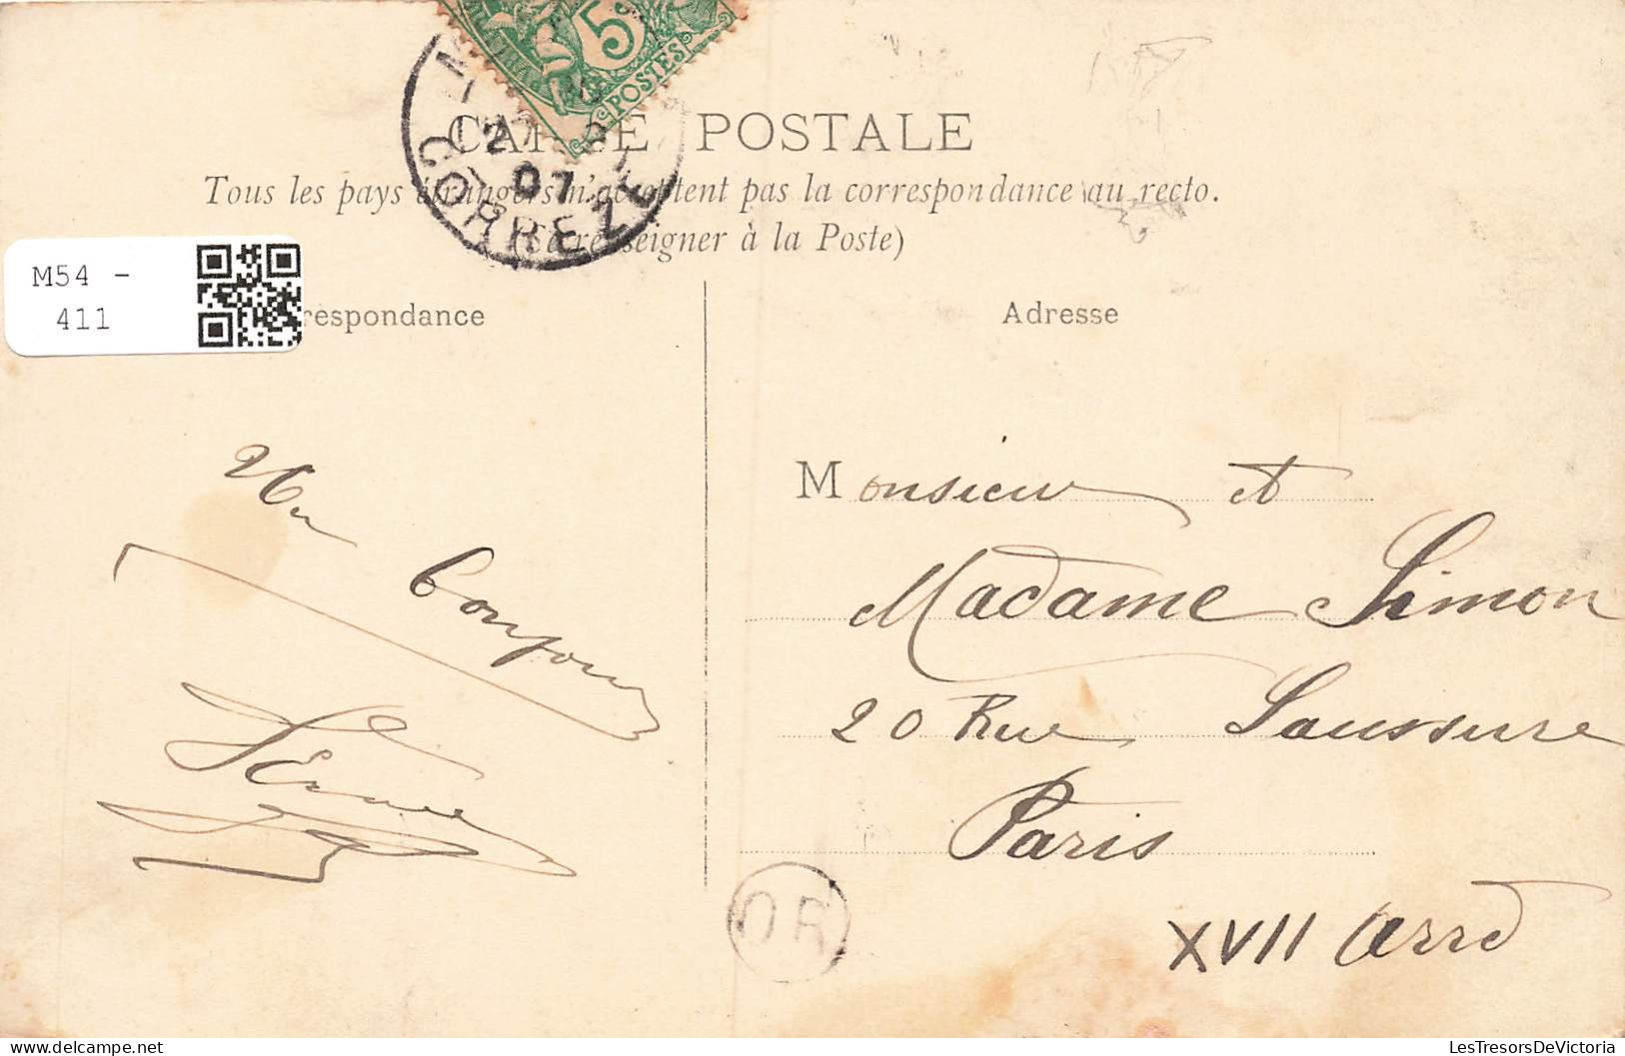 5
POSTES
CARTE POSTALE
Tous les pays étrangers n'acceptent pas la correspondance au recto.
(Se renseigner à la Poste)
07
CORREZE
M54 -
411
respondance
Adresse
Un
bonjour
Monsieur et
Madame Simon
20 Rue Saussure
Paris
XVII Arrd
OR
LesTresorsDeVictoria